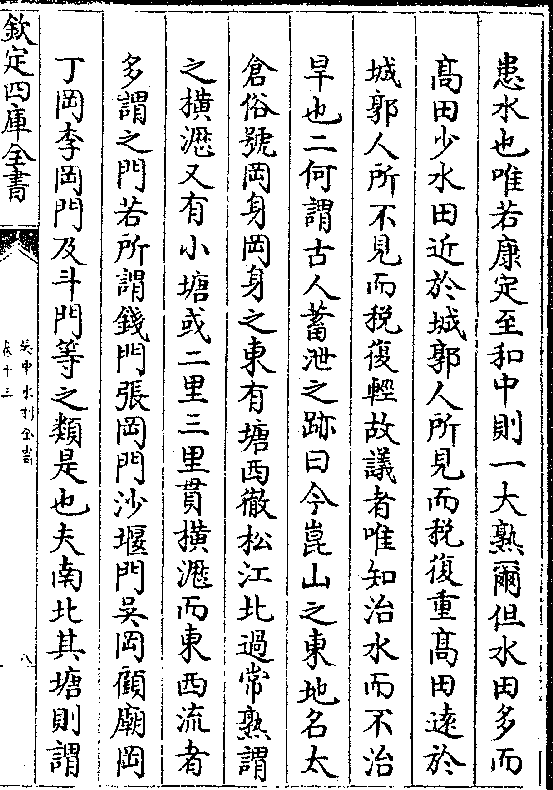 患水也唯若康定至和中則一大熟爾但水田多而
髙田少水田近於城郭人所見而税復重髙田逺於
城郭人所不見而税復輕故議者唯知治水而不治
旱也二何謂古人蓄泄之跡曰今崑山之東地名太
倉俗號岡身岡身之東有塘西徹松江北過常熟謂
之横瀝又有小塘或二里三里貫横瀝而東西流者
多謂之門若所謂錢門張岡門沙堰門吳岡顧廟岡
丁岡李岡門及斗門等之類是也夫南北其塘則謂
欽定四庫全書
吳中水利全書
卷十三
八